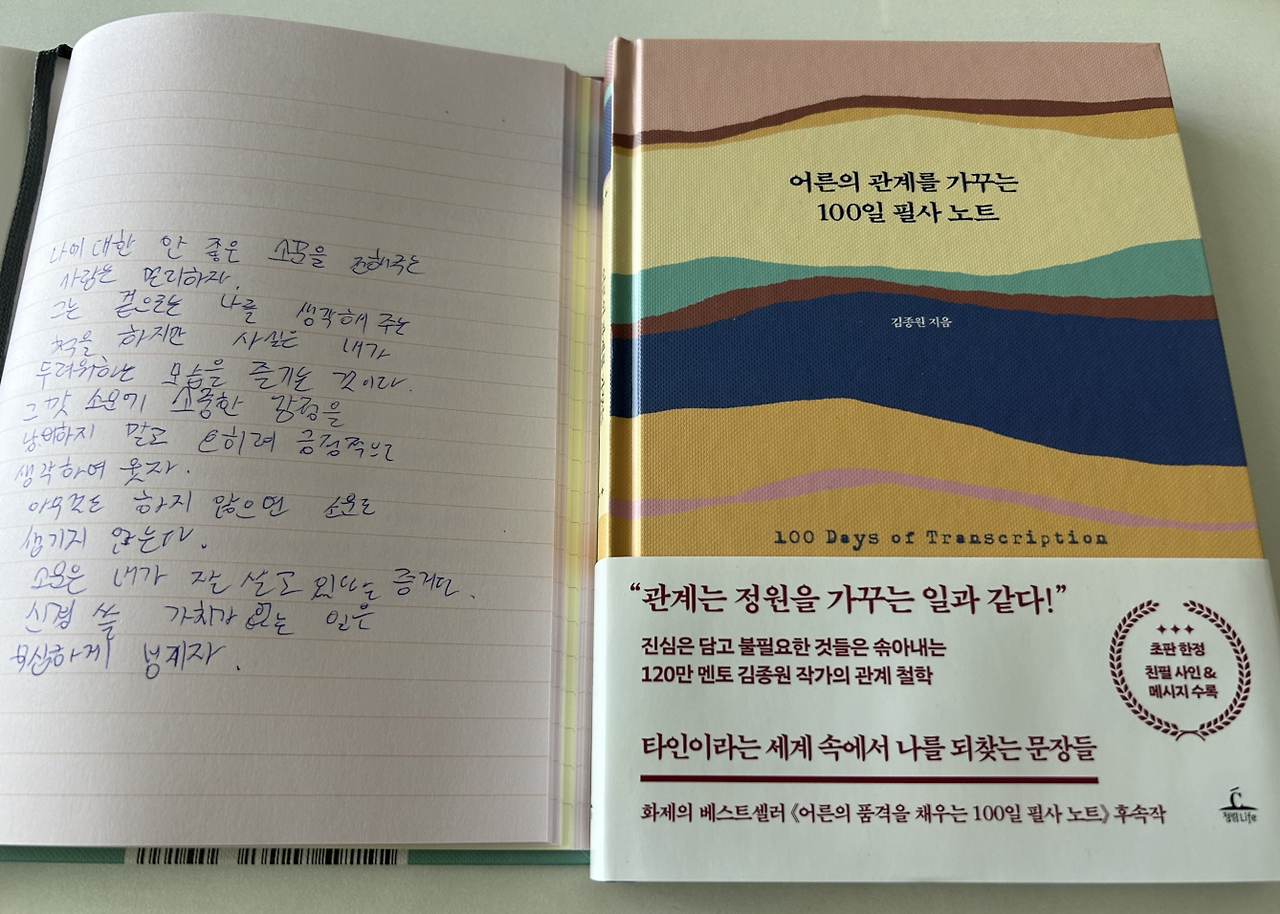 나에 대한 안 좋은 소문을 전해주는
사람은 멀리하자.
그는 겉으로는 나를 생각해 주는
척을 하지만 사실은 내가
두려워하는 모습을 즐기는 것이다.
그깟 소문에 소중한 감정을
낭비하지 말고 오히려 긍정적으로
생각하며 웃자.
아무것도 하지 않으면 소문도
생기지 않는다.
소문은 내가 잘 살고 있다는 증거다.
신경 쓸 가치가 없는 일은
무심하게 넘기자.
어른의 관계를 가꾸는
100일 필사 노트
김종원 지음
100 Days of Transcription
“관계는 정원을 가꾸는 일과 같다!”
진심은 담고 불필요한 것들은 솎아내는
120만 멘토 김종원 작가의 관계 철학
초판 한정
친필 사인 &
메시지 수록
타인이라는 세계 속에서 나를 되찾는 문장들
화제의 베스트셀러 《어른의 품격을 채우는 100일 필사 노트》 후속작
청림Life